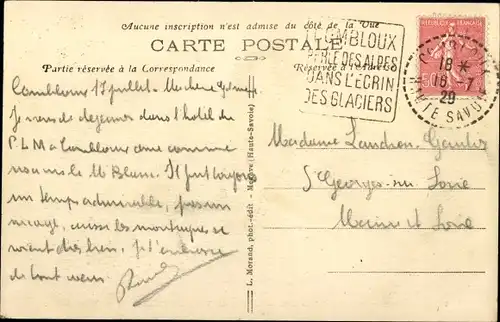 Aucune inscription n'est admise du côté de la Vue
CARTE POSTALE
Partie réservée à la Correspondance
Réservée à l'adresse
COMBLOUX
PERLE DES ALPES
DANS L'ECRIN
DES GLACIERS
REPUBLIQUE FRANCAISE
50
COMBLOUX
18 *
16 -7
29
HTE SAVOIE
Combloux 17 juillet. Ma chère
Je viens de déjeuner dans l'hôtel du
P L M à Combloux avec comme
le Mt Blanc. Il fait toujours
un temps admirable, pas un
nuage, aussi les montagnes se
voient très bien, je t'embrasse
de tout cœur
L. Morand, phot.-édit - Megève (Haute-Savoie)
Madame Landron
St Georges sur Loire
Maine et Loire